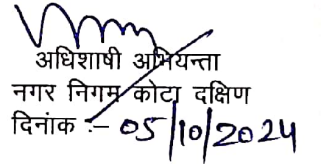 अधिशाषी अभियन्ता
नगर निगम कोटा दक्षिण
दिनांक :– 05/10/2024